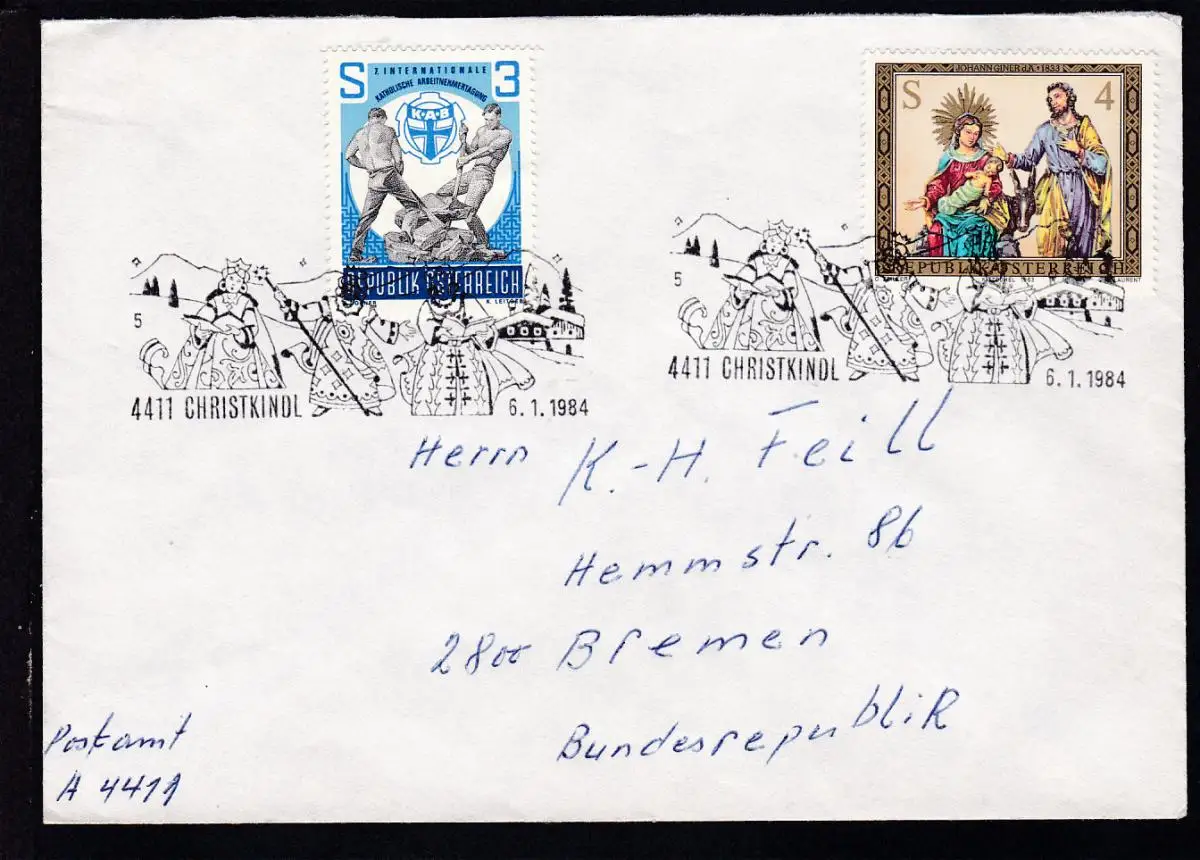 7. INTERNATIONALE
KATHOLISCHE ARBEITNEHMERTAGUNG
S 3
K·A·B
REPUBLIK ÖSTERREICH
K. LEITGEB
JOHANN GINER d.Ä. • 1833
S 4
REPUBLIK ÖSTERREICH
5
4411 CHRISTKINDL
6.1.1984
5
4411 CHRISTKINDL
6.1.1984
Herrn K.-H. Feill
Hemmstr. 86
2800 Bremen
Bundesrepublik
Postamt
A 4411